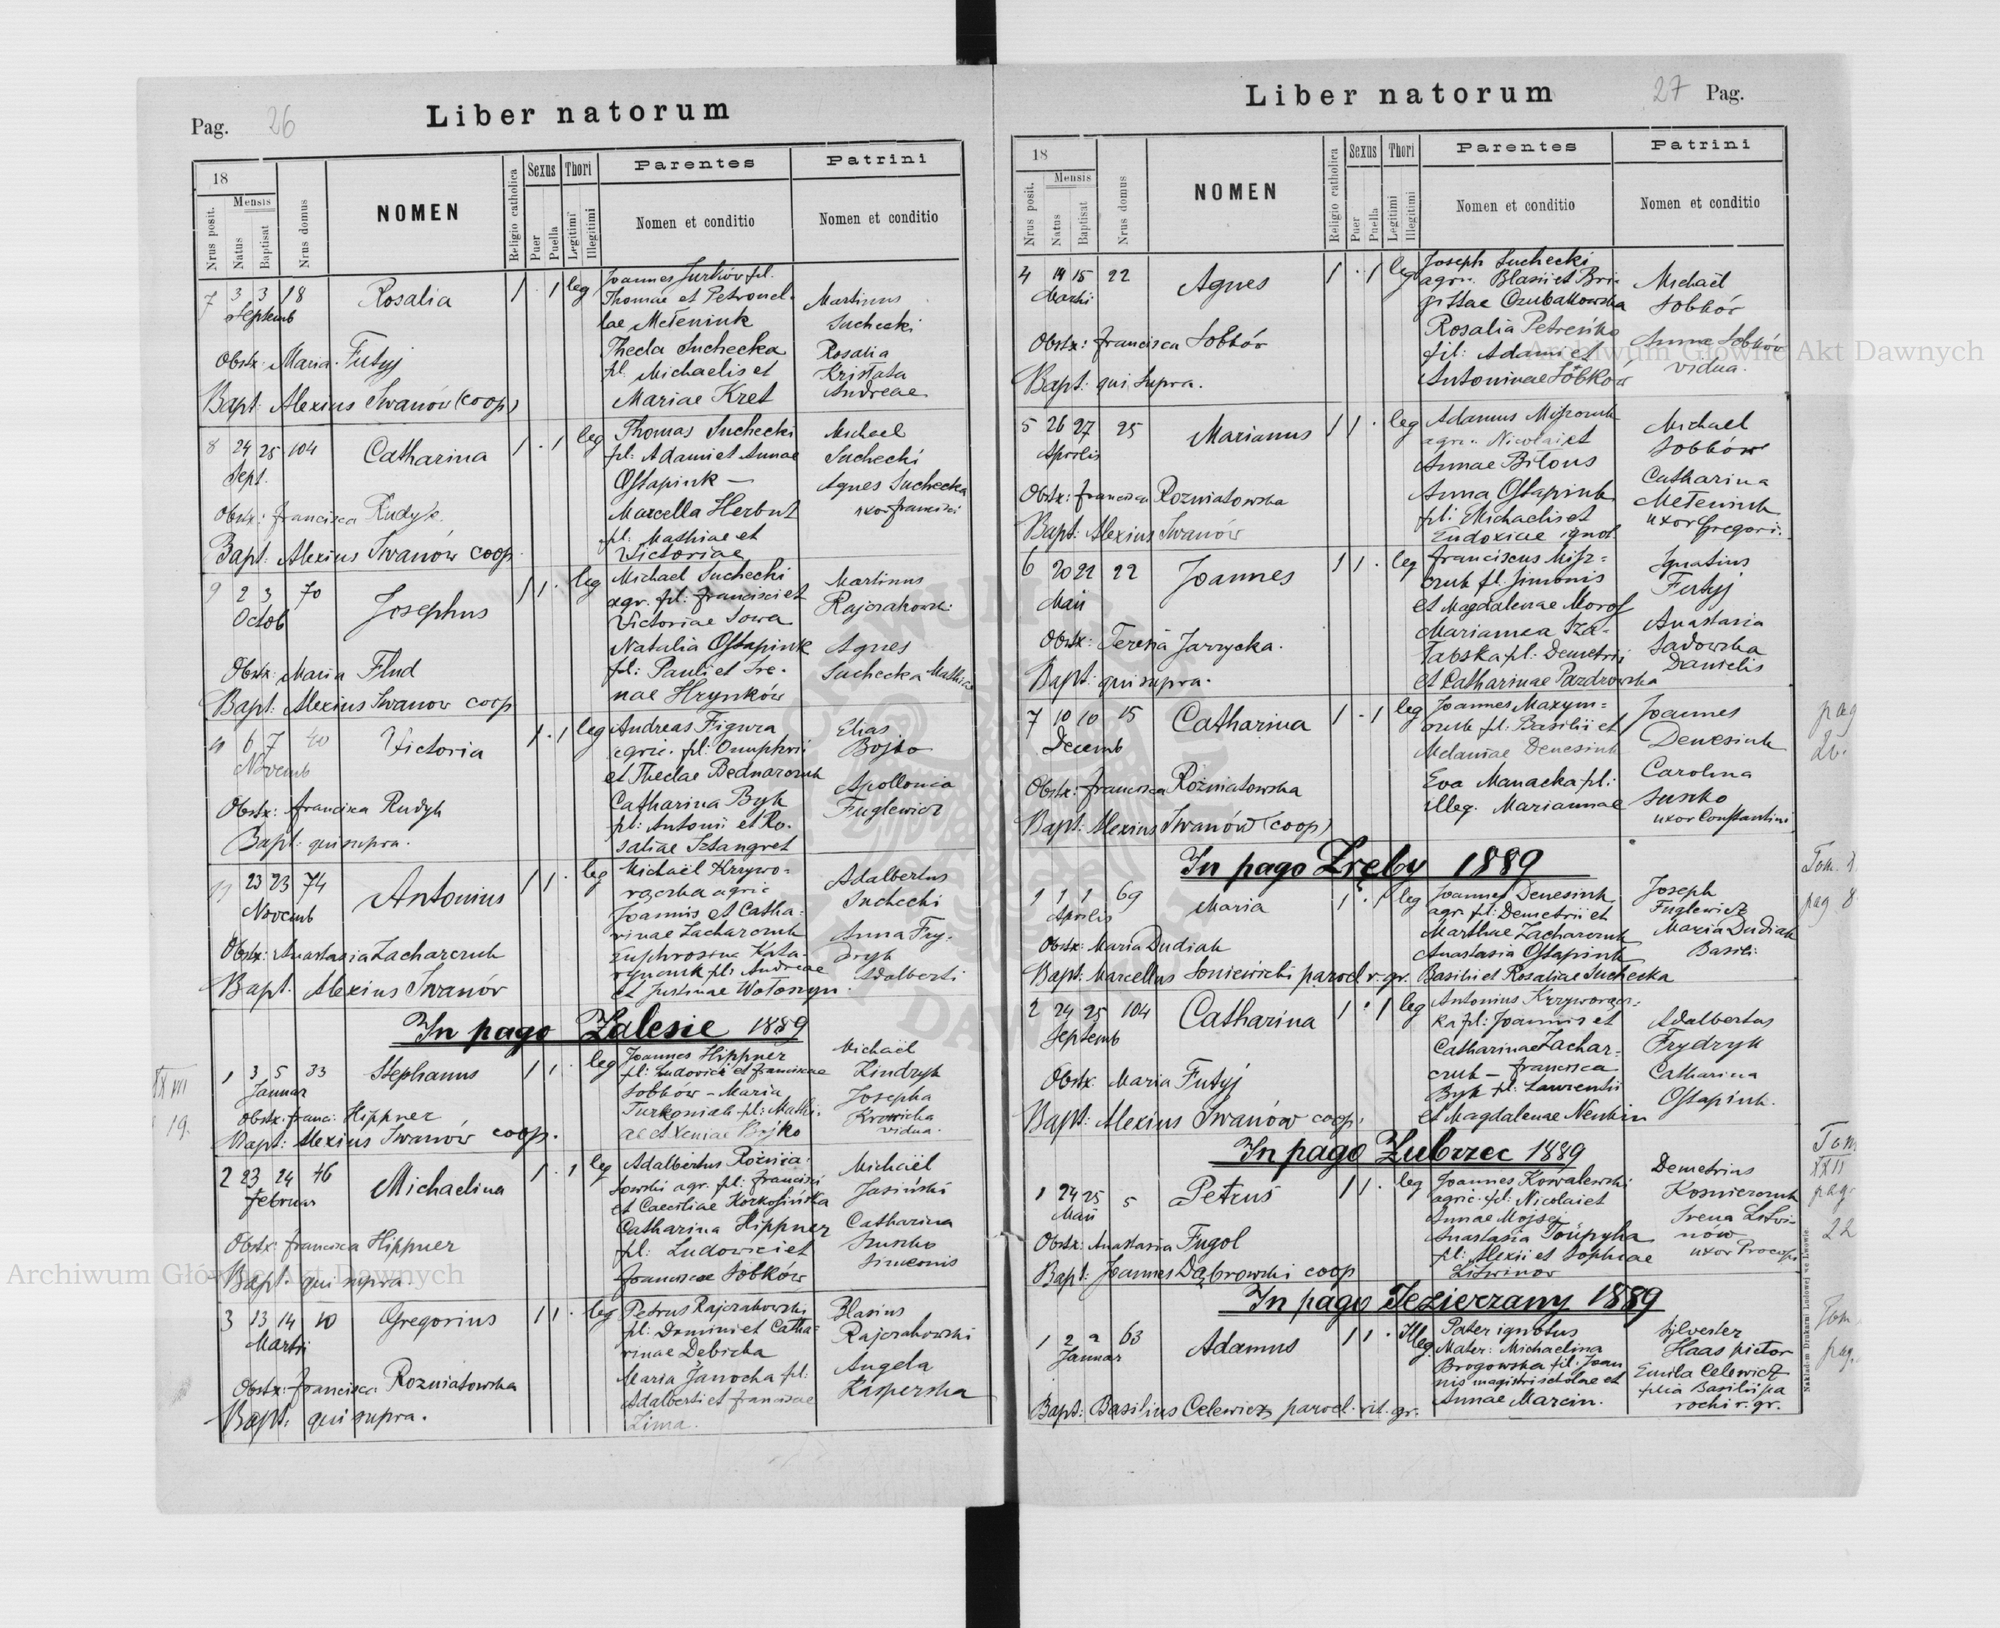 Pag. 26
Liber natorum
18
Mensis
Nrus posit.
Natus
Baptisat
Nrus domus
NOMEN
Religio catholica
Sexus
Puer
Puella
Thori
Legitimi
Illegitimi
Parentes
Nomen et conditio
Patrini
Nomen et conditio
7 3 3 18 Rosalia 1 . 1 leg
Septemb
Joannes Jurkiów fil.
Thomae et Petronel-
lae Meteniuk
Thecla Suchecka
fil. Michaelis et
Mariae Kret
Martinus
Suchecki
Rosalia
Andreae
Obstx: Maria Futyj
Bapt: Alexius Iwanów (coop)
8 24 25 104 Catharina 1 . 1 leg
Sept.
Thomas Suchecki
fil: Adami et Annae
Ostapiuk —
Marcella Herbut
fil. Mathiae et
Victoriae
Michael
Suchecki
Agnes Suchecka
uxor Francisci
Obstx: Francisca Rudyk.
Bapt. Alexius Iwanów coop
9 2 3 70 Josephus 1 1 . leg
Octob
Michael Suchecki
agr. fil: Francisci et
Victoriae Sowa
Natalia Ostapiuk
fil: Pauli et Ire-
nae Hrynków
Martinus
Rajczakowski
Agnes
Suchecka Mathiae
Obstx: Maria Flud
Bapt: Alexius Iwanow coop
10 6 7 40 Victoria 1 . 1 leg
Novemb
Andreas Figura
agric. fil: Onuphrii
et Theclae Bednarczuk
Catharina Byk
fil: Antonii et Ro-
saliae Sztangret
Elias
Bojko
Apollonia
Fuglewicz
Obstx: Francisca Rudyk
Bapt: qui supra.
11 23 23 74 Antonius 1 1 . leg
Novemb
Michaël Krzywo-
rączka agric
Joannis et Catha-
rinae Zacharczuk
Euphrosina Kata-
rynczuk fil: Andreae
et Justinae Wołoszyn.
Adalbertus
Suchecki
Anna Fry-
dryk
Adalberti
Obstx: Anastasia Zacharczuk
Bapt. Alexius Iwanów
In pago Zalesie 1889
XXVII
19.
1 3 5 33 Stephanus 1 1 . leg
Januar
Joannes Hippner
fil: Ludovici et Franciscae
Sobków – Maria
Turkoniak fil: Mathi-
ae et Xeniae Bojko
Michaël
Kindzyk
Josepha
vidua.
Obstx. Franc: Hippner
Bapt: Alexius Iwanów coop.
2 23 24 46 Michaelina 1 . 1 leg
Februar
Adalbertus Roźnia-
towski agr. fil: Francisci
et Caeciliae Korkosińska
Catharina Hippner
fil: Ludovici et
Franciscae Sobków
Michaël
Jasiński
Catharina
Suszko
Simeonis
Obstx: Francisca Hippner
Bapt: qui supra.
3 13 14 10 Gregorius 1 1 . leg
Martii
Petrus Rajczakowski
fil: Domini et Catha-
rinae Dębicka
Maria Janocha fil:
Adalberti et Franciscae
Zima.
Blasius
Rajczakowski
Angela
Kasperska
Obstx: Francisca Rozniatowska
Bapt: qui supra.
Liber natorum
27 Pag.
18
Mensis
Nrus posit.
Natus
Baptisat
Nrus domus
NOMEN
Religio catholica
Sexus
Puer
Puella
Thori
Legitimi
Illegitimi
Parentes
Nomen et conditio
Patrini
Nomen et conditio
4 14 15 22 Agnes 1 . 1 leg
Martii
Joseph Suchecki
agric. Blasii et Bri-
gittae Czubatkowska
Rosalia Petreńko
fil: Adami et
Antoninae Sobków
Michaël
Sobków
Anna Sobków
vidua.
Obstx: Francisca Sobków
Bapt: qui supra.
5 26 27 25 Marianus 1 1 . leg
Aprilis
Adamus Miszczuk
agric. Nicolai et
Annae Biłous
Anna Ostapiuk
fil: Michaelis et
Eudoxiae ignot.
Michael
Sobków
Catharina
Meteniuk
uxor Gregori:
Obstx: Francisca Rozniatowska
Bapt: Alexius Iwanów
6 20 22 22 Joannes 1 1 . leg
Maii
Franciscus Misz-
czuk fil. Simonis
et Magdalenae Moroz
Marianna Sza-
fil: Demetrii
et Catharinae Pazdrowska
Ignatius
Futyj
Anastasia
Sadowska
Danielis
Obstx: Teresia Jarzycka.
Bapt: qui supra.
7 10 10 15 Catharina 1 . 1 leg
Decemb
Joannes Maxym-
czuk fil: Basilii et
Melaniae Denesiuk
Eva Manacka fil:
illeg. Mariannae
Joannes
Denesiuk
Carolina
Suszko
uxor Constantini
pag
26.
Obstx: Francisca Rozniatowska
Bapt: Alexius Iwanów (coop)
In pago Zręby 1889
Tom.
pag 8
1 1 1 69 Maria 1 . 1 leg
Aprilis
Joannes Denesiuk
agr. fil: Demetrii et
Marthae Zacharczuk
Anastasia Ostapiuk
Basilii et Rosaliae Suchecka
Joseph
Fuglewicz
Maria Dudiak
Basili:
Obstx: Maria Dudiak
Bapt: Marcellus Soniewicki paroch r. gr.
2 24 25 104 Catharina 1 . 1 leg
Septemb
Antonius Krzyworącz-
ka fil: Joannis et
Catharinae Zachar-
czuk – Francisca
Byk fil: Laurentii
et Magdalenae Neukin
Adalbertus
Frydryk
Catharina
Ostapiuk.
Obstx: Maria Futyj
Bapt: Alexius Iwanów coop.
In pago Zubrzec 1889
Tom
XXII
pag.
22
1 24 25 5 Petrus 1 1 . leg
Maii
Joannes Kowalewski
agric. fil: Nicolai et
Annae Mojsej
Anastasia
fil: Alexii et Sophiae
Litwinow
Demetrius
Kosnierczuk
Irena Litwi-
nów
uxor Procopi
Obstx: Anastasia Fugol
Bapt: Joannes Dąbrowski coop
In pago Jezierzany 1889
Tom.
pag.
1 2 2 63 Adamus 1 1 . Illeg.
Januar
Pater ignotus
Mater: Michaelina
Brogowska fil: Joan
nis magistri scholae et
Annae Marcin.
Silvester
Haas pictor
Emila Celewicz
filia Basilii pa
rochi r. gr.
Bapt: Basilius Celewicz paroch. rit. gr.
Nakładem Drukarni Ludowej we Lwowie.
Archiwum Główne Akt Dawnych
Archiwum Główne Akt Dawnych